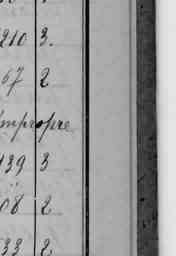 210 3.
67 2
impropre
139 3
08 2
33 2